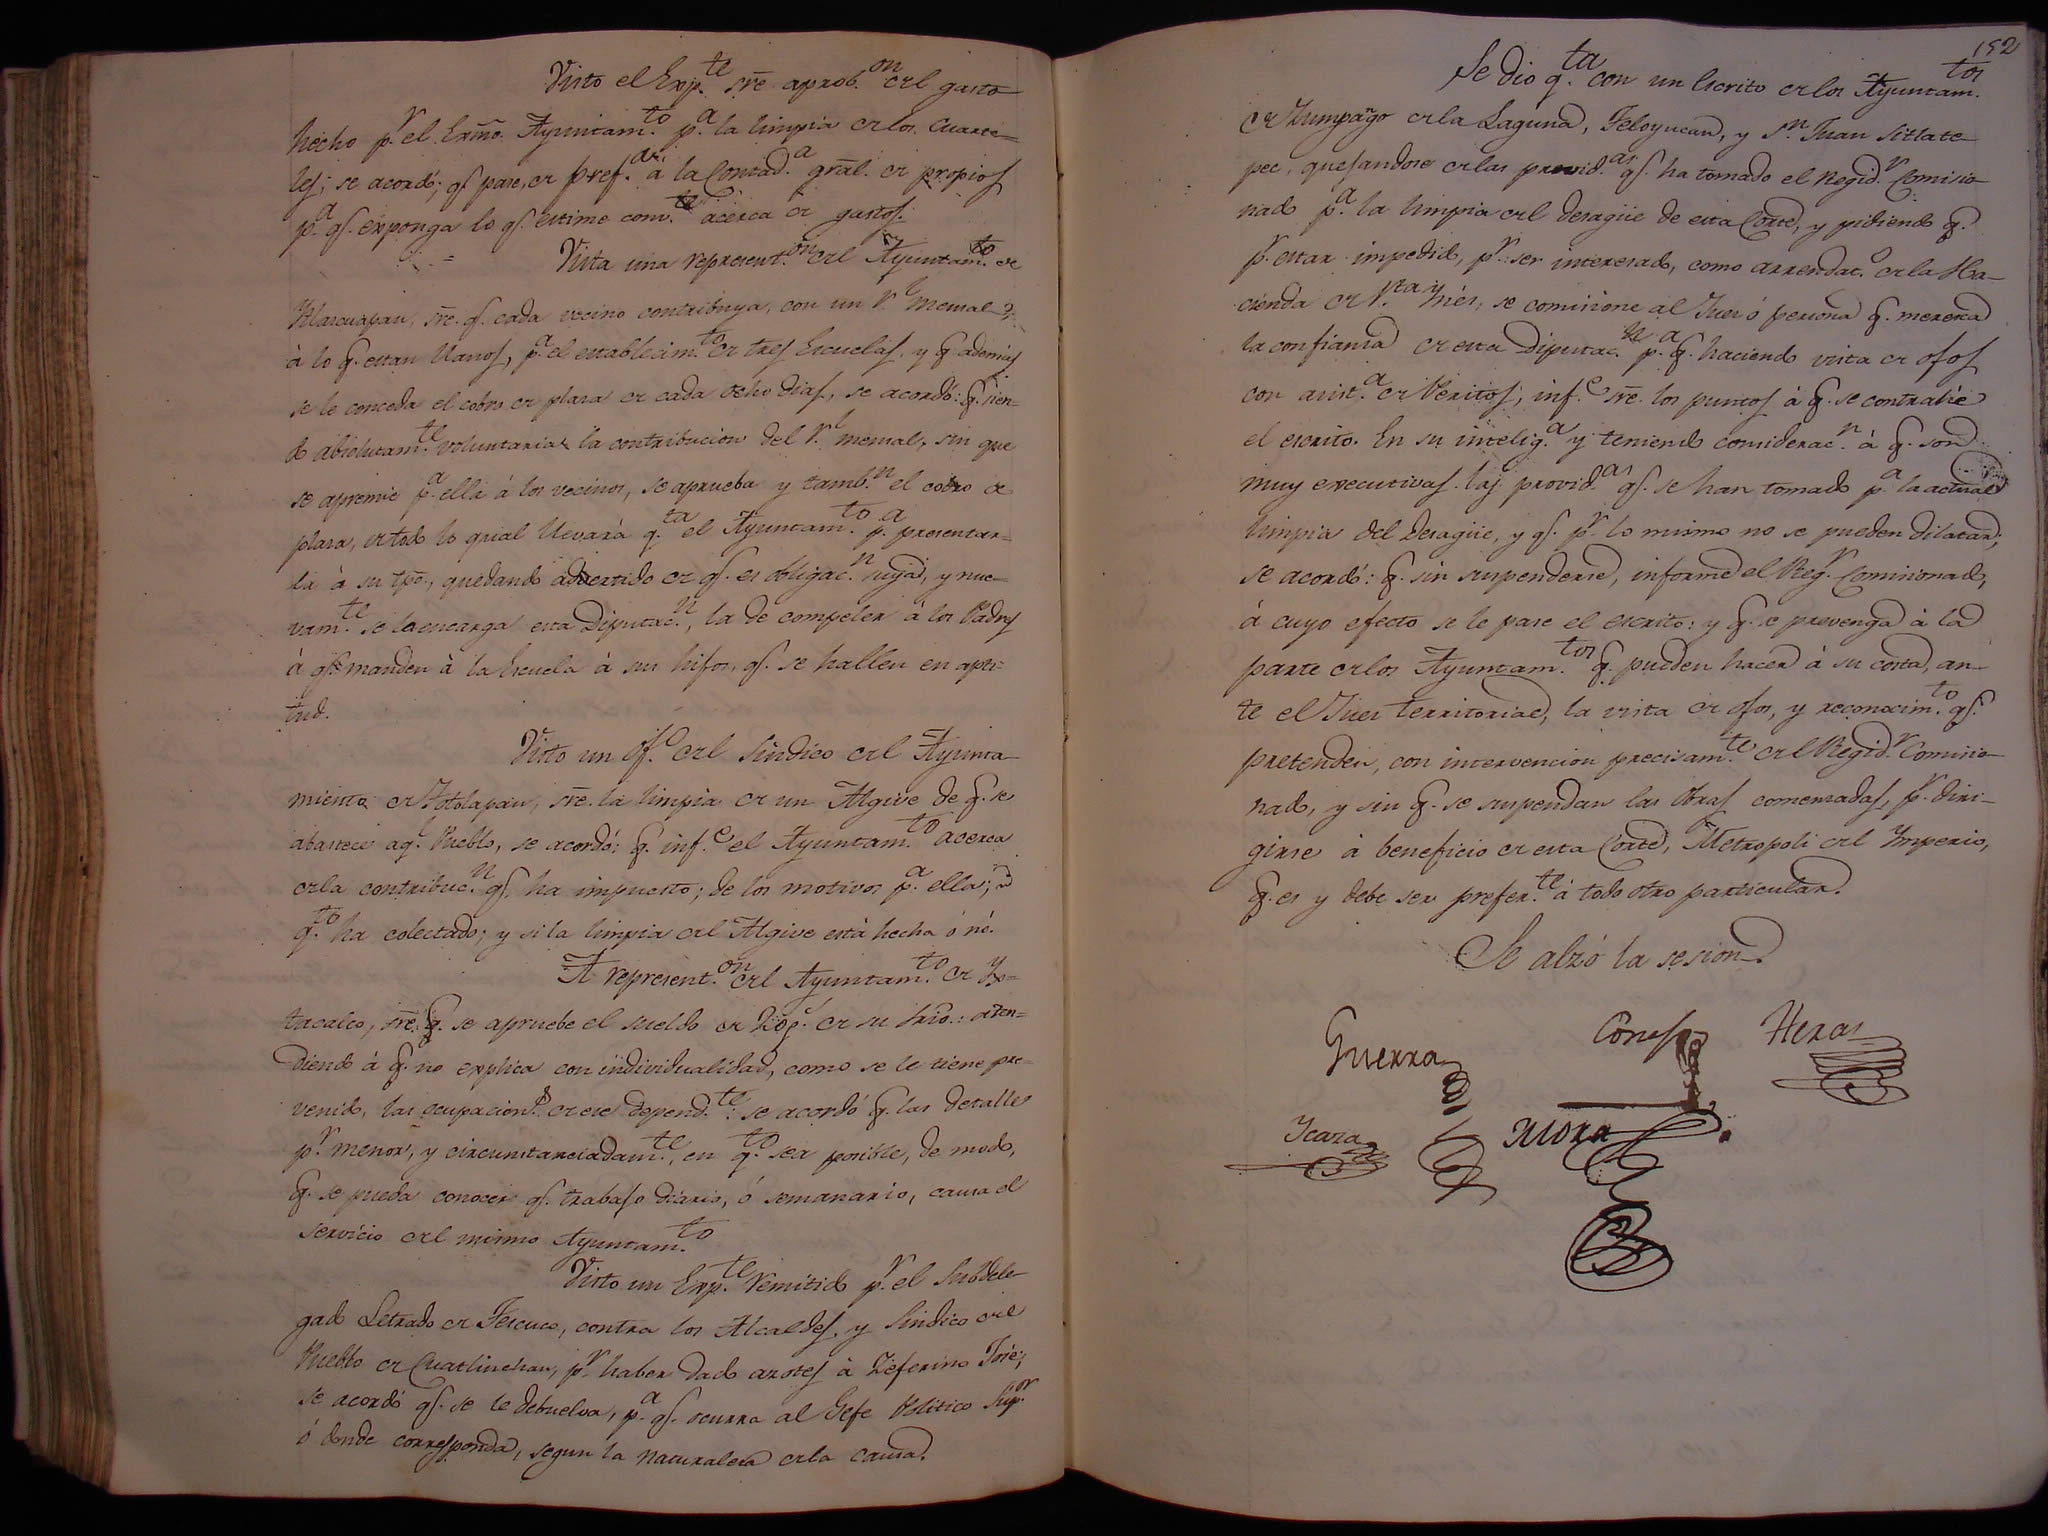 Visto el Exp.te sre. aprob.on del gasto
hecho p.r el Exmo. Ayuntam.to p.a la limpia de los Cuarte-
les; se acordó; q.e pase, de pref. a la Contad.a gral. de propios
p.a q.e exponga lo q.e estime conv.te acerca de gastos.
Vista una represent.on del Ayuntam.to de
sre. q.e cada vecino contribuya, con un r.l mensual
à lo q.e estan llanos, p.a el establecim.to de tres Escuelas, y q.e ademas
se le conceda el cobro de plaza de cada ocho dias, se acordó: q.e sien-
do absolutam.te voluntaria la contribucion del r.l mensual, sin que
se apremie p.a ella á los vecinos, se aprueba y tamb.n el cobro de
plaza, de todo lo qual llevará q.ta el Ayuntam.to p.a presentar-
la à su tpo., quedando advertido de q.e es obligac.n suya, y nue-
vam.te se le encarga esta Diputac.n, la de compeler à los Padres
à q.e manden à la Escuela à sus hijos, q.e se hallen en apti-
tud.
Visto un Of.o del Sindico del Ayunta-
miento de Totolapan, sre. la limpia de un Algive de q.e se
abastece aq.l Pueblo, se acordó: q.e inf.e el Ayuntam.to acerca
de la contribuc.n q.e ha impuesto; de los motivos p.a ella;
q.to ha colectado; y si la limpia del Algive está hecha ó nó.
A represent.on del Ayuntam.to de Yz-
tacalco, sre. q.e se apruebe el sueldo de 200 p.s de su Srio.: aten-
diendo á q.e no explica con individualidad, como se le tiene pre-
venido, las ocupacion.s de ese depend.te: se acordó q.e las detalle
p.r menor, y circunstanciadam.te, en q.to sea posible, de modo,
q.e se pueda conocer q.e trabajo diario, ó semanario, causa el
servicio del mismo Ayuntam.to
Visto un Exp.te remitido p.r el Subdele-
gado Letrado de Tescuco, contra los Alcaldes, y Sindico del
Pueblo de Cuatlinchan, p.r haber dado azotes à Zeferino José;
se acordó q.e se le debuelva, p.a q.e ocurra al Gefe Politico Sup.or
ó donde corresponda, segun la naturaleza de la causa.
152
Se dio q.ta con un Escrito de los Ayuntam.tos
de Zumpango de la Laguna, Teloyucan, y S.n Juan Sitlate-
pec, quejandose de las provid.as q.e ha tomado el Regid.r Comisio-
nado p.a la limpia del desagüe de esta Corte, y pidiendo q.e
p.r estar impedido, p.r ser interesado, como arrendat.o de la Ha-
cienda de S.ta Ynés, se comisione al Juez ó persona q.e merezca
la confianza de esta Diputac.n p.a q.e haciendo vista de ojos
con asist.a de Peritos, inf.e sre. los puntos á q.e se contrahe
el escrito. En su intelig.a y teniendo considerac.n á q.e son
muy executivas las provid.as q.e se han tomado p.a la actual
limpia del Desagüe, y q.e p.r lo mismo no se pueden dilatar;
se acordó: q.e sin suspenderse, informe el Reg.r Comisionado,
á cuyo efecto se le pase el escrito: y q.e se prevenga à la
parte de los Ayuntam.tos q.e pueden hacer à su costa, an-
te el Juez territorial, la vista de ojos, y reconocim.to q.e
pretenden, con intervencion precisam.te del Regid.r Comisio-
nado, y sin q.e se suspendan las obras comenzadas, p.r diri-
girse à beneficio de esta Corte, Metropoli del Ymperio,
q.e es y debe ser prefer.te á todo otro particular.
Se alzó la sesion.
Guerra Cortes Heras
Ycaza Mora